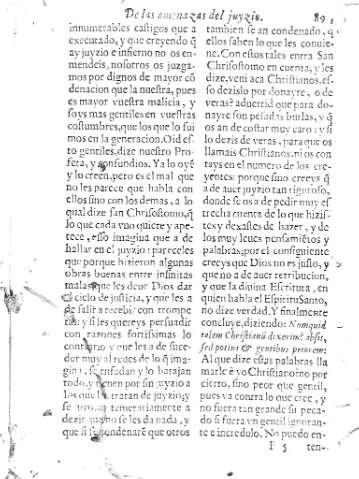 De las amenazas del juyzio. 89
innumerables castigos que a
executado, y que creyendo q̃
ay juyzio e infierno no os en-
mendeis, nosotros os juzga-
mos por dignos de mayor cõ
denacion que la nuestra, pues
es mayor vuestra malicia, y
soys mas gentiles en vuestras
costumbres, que los que lo fui
mos en la generacion. Oid es-
to gentiles, dize nuestro Pro-
feta, y confundios. Ya lo oyẽ
y lo creen, pero es el mal que
no les parece que habla con
ellos sino con los demas, a lo
qual dize san Chrisostomo, q̃
lo que cada vno quiere y ape-
tece, esso imagina que a de
hallar en el juyzio: pareceles
que porque hizieron algunas
obras buenas entre infinitas
malas que les deue Dios dar
el cielo de justicia, y que les a
de salir a recebir con trompe
tas: y si les quereys persuadir
con razones fortissimas lo
contrario y que les a de suce-
der muy al reues de lo q̃ ima-
gina, se enfadan y lo barajan
todo, y tienen por sin juyzio a
los que tratan de juyzio; y
se temerariamente a
dezir que no se les da nada, y
que si se condenarẽ que otros
tambien se an condenado, q̃
ellos saben lo que les conuie-
ne. Con estos tales entra San
Chrisostomo en cuenta, y les
dize, veni aca Christianos. es-
so dezislo por donayre, o de
veras? aduertid que para do-
nayre son pesadas burlas, y q̃
os an de costar muy caro: y si
lo dezis de veras, para que os
llamais Christianos, ni os con
tays en el numero de los cre-
yentes: porque sino creeys q̃
a de auer juyzio tan riguroso,
donde se os a de pedir muy es
trecha cuenta de lo que hizis-
tes y dexastes de hazer, y de
los muy leues pensamiẽtos y
palabras; por el consiguiente
creeys que Dios no es justo, y
que no a de auer retribucion,
y que la diuina Escritura, en
quien habla el Espiritu Santo,
no dize verdad. Y finalmente
concluye, diziendo: Nunquid
talem Christianũ dixerim? absit,
sed potius & gentibus peiorem:
Al que dize estas palabras lla
marle è yo Christiano? no por
cierto, sino peor que gentil,
pues va contra lo que cree, y
no fuera tan grande su peca-
do si fuera vn gentil ignoran-
te e incredulo. No puedo en-
F 5 ten-